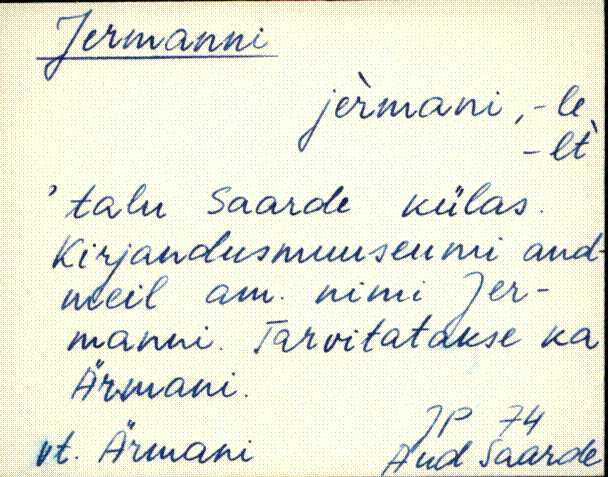 Jermanni
jèrmani, -le
-lt
'talu Saarde külas.
Kirjandusmuuseumi and-
meil am. nimi Jer-
manni. Tarvitatakse ka
Ärmani.
vt. Ärmani
JP 74
Aud Saarde